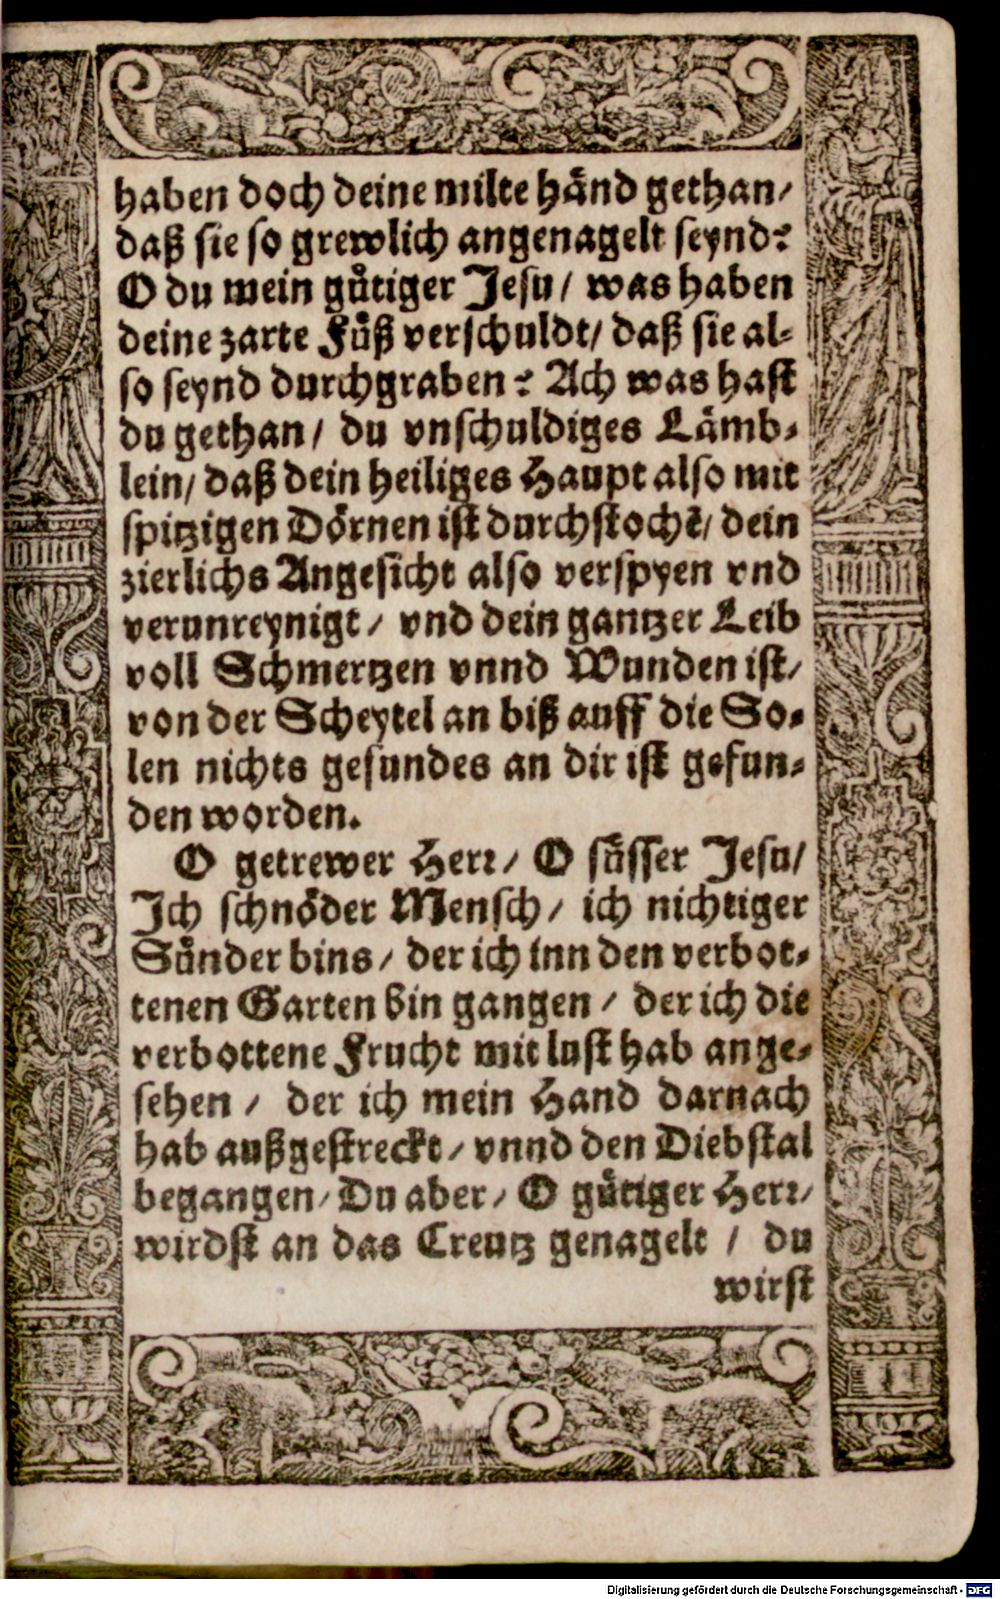 haben doch deine milte händ gethan/
daß sie so grewlich angenagelt seynd?
O du mein gůtiger Jesu/ was haben
deine zarte Fůß verschuldt/ daß sie al-
so seynd durchgraben? Ach was hast
du gethan/ du vnschuldiges Lämb-
lein/ daß dein heiliges Haupt also mit
spitzigen Dörnen ist durchstochẽ/ dein
zierlichs Angesicht also verspyen vnd
verunreynigt/ vnd dein gantzer Leib
voll Schmertzen vnnd Wunden ist/
von der Scheytel an biß auff die So-
len nichts gesundes an dir ist gefun-
den worden.
O getrewer Herr/ O sůsser Jesu/
Ich schnöder Mensch/ ich nichtiger
Sůnder bins/ der ich inn den verbot-
tenen Garten bin gangen/ der ich die
verbottene Frucht mit lust hab ange-
sehen/ der ich mein Hand darnach
hab außgestreckt/ vnnd den Diebstal
begangen/ Du aber/ O gůtiger Herr/
wirdst an das Creutz genagelt/ du
wirst
Digitalisierung gefördert durch die Deutsche Forschungsgemeinschaft - DFG